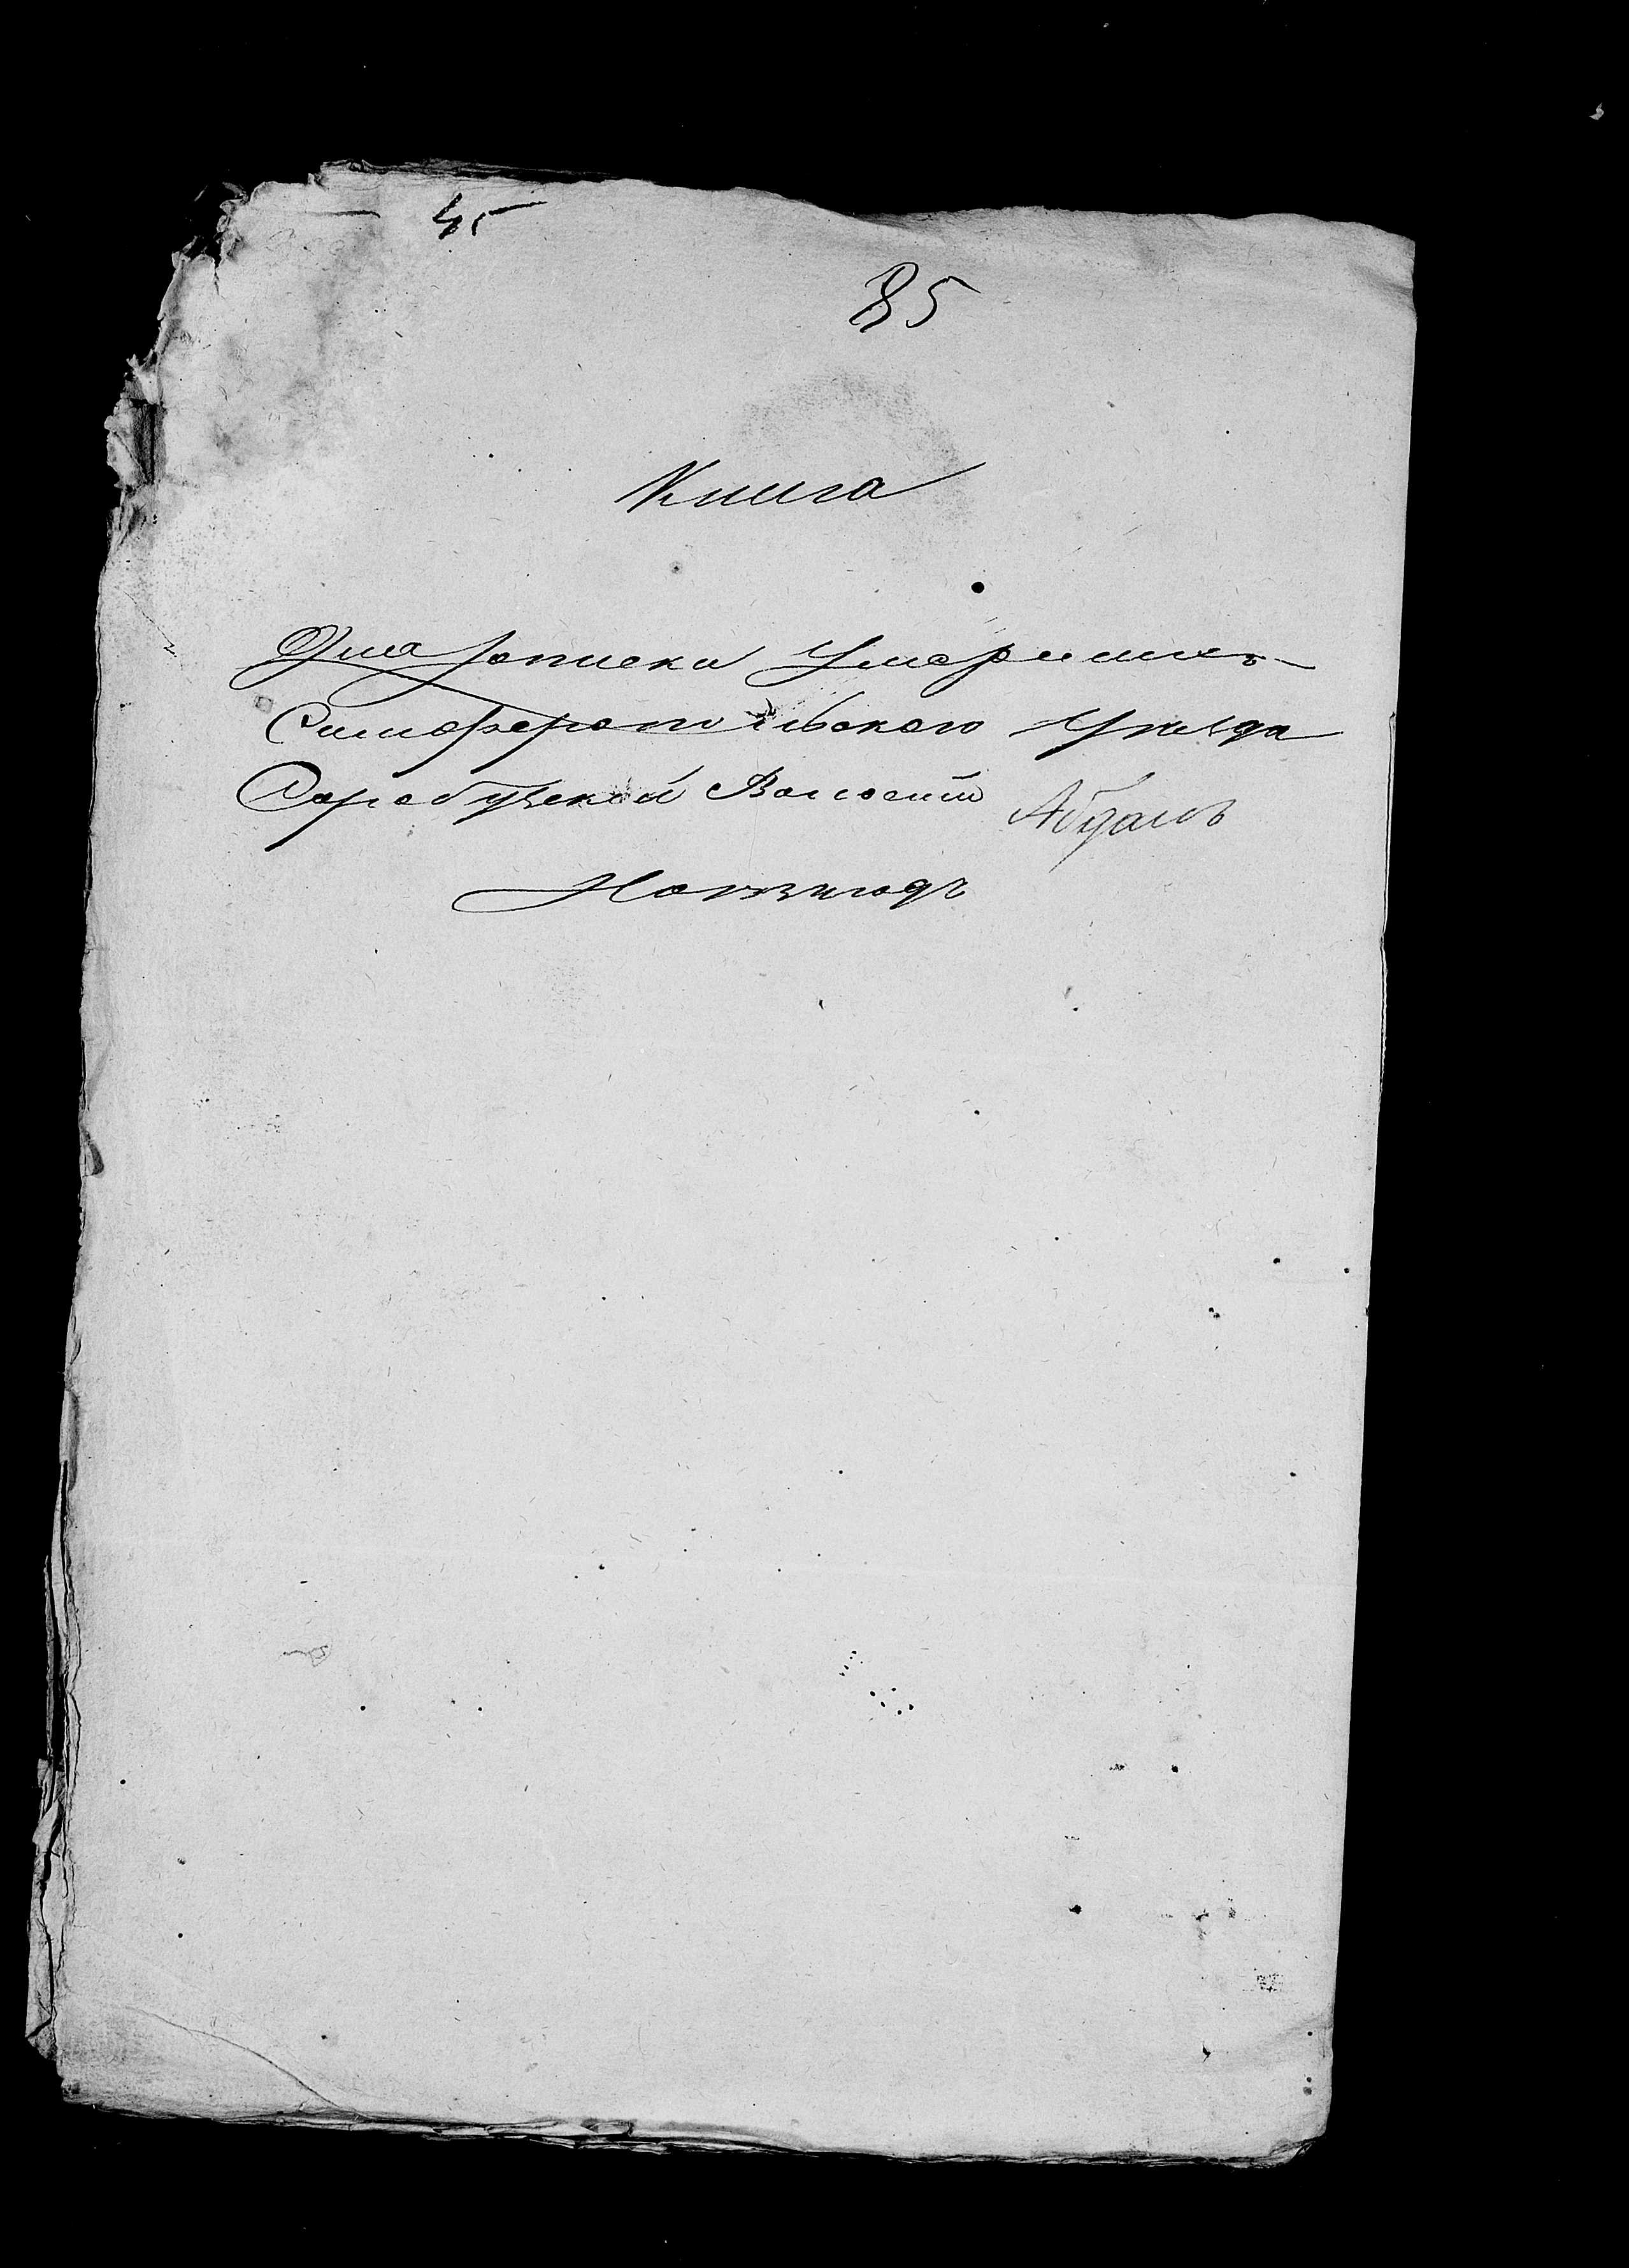 45
85
Книга
Для записки Умершихъ
Симферопольскаго Уѣзда
Сарабузской Волости Абдалъ
На 1873 годъ